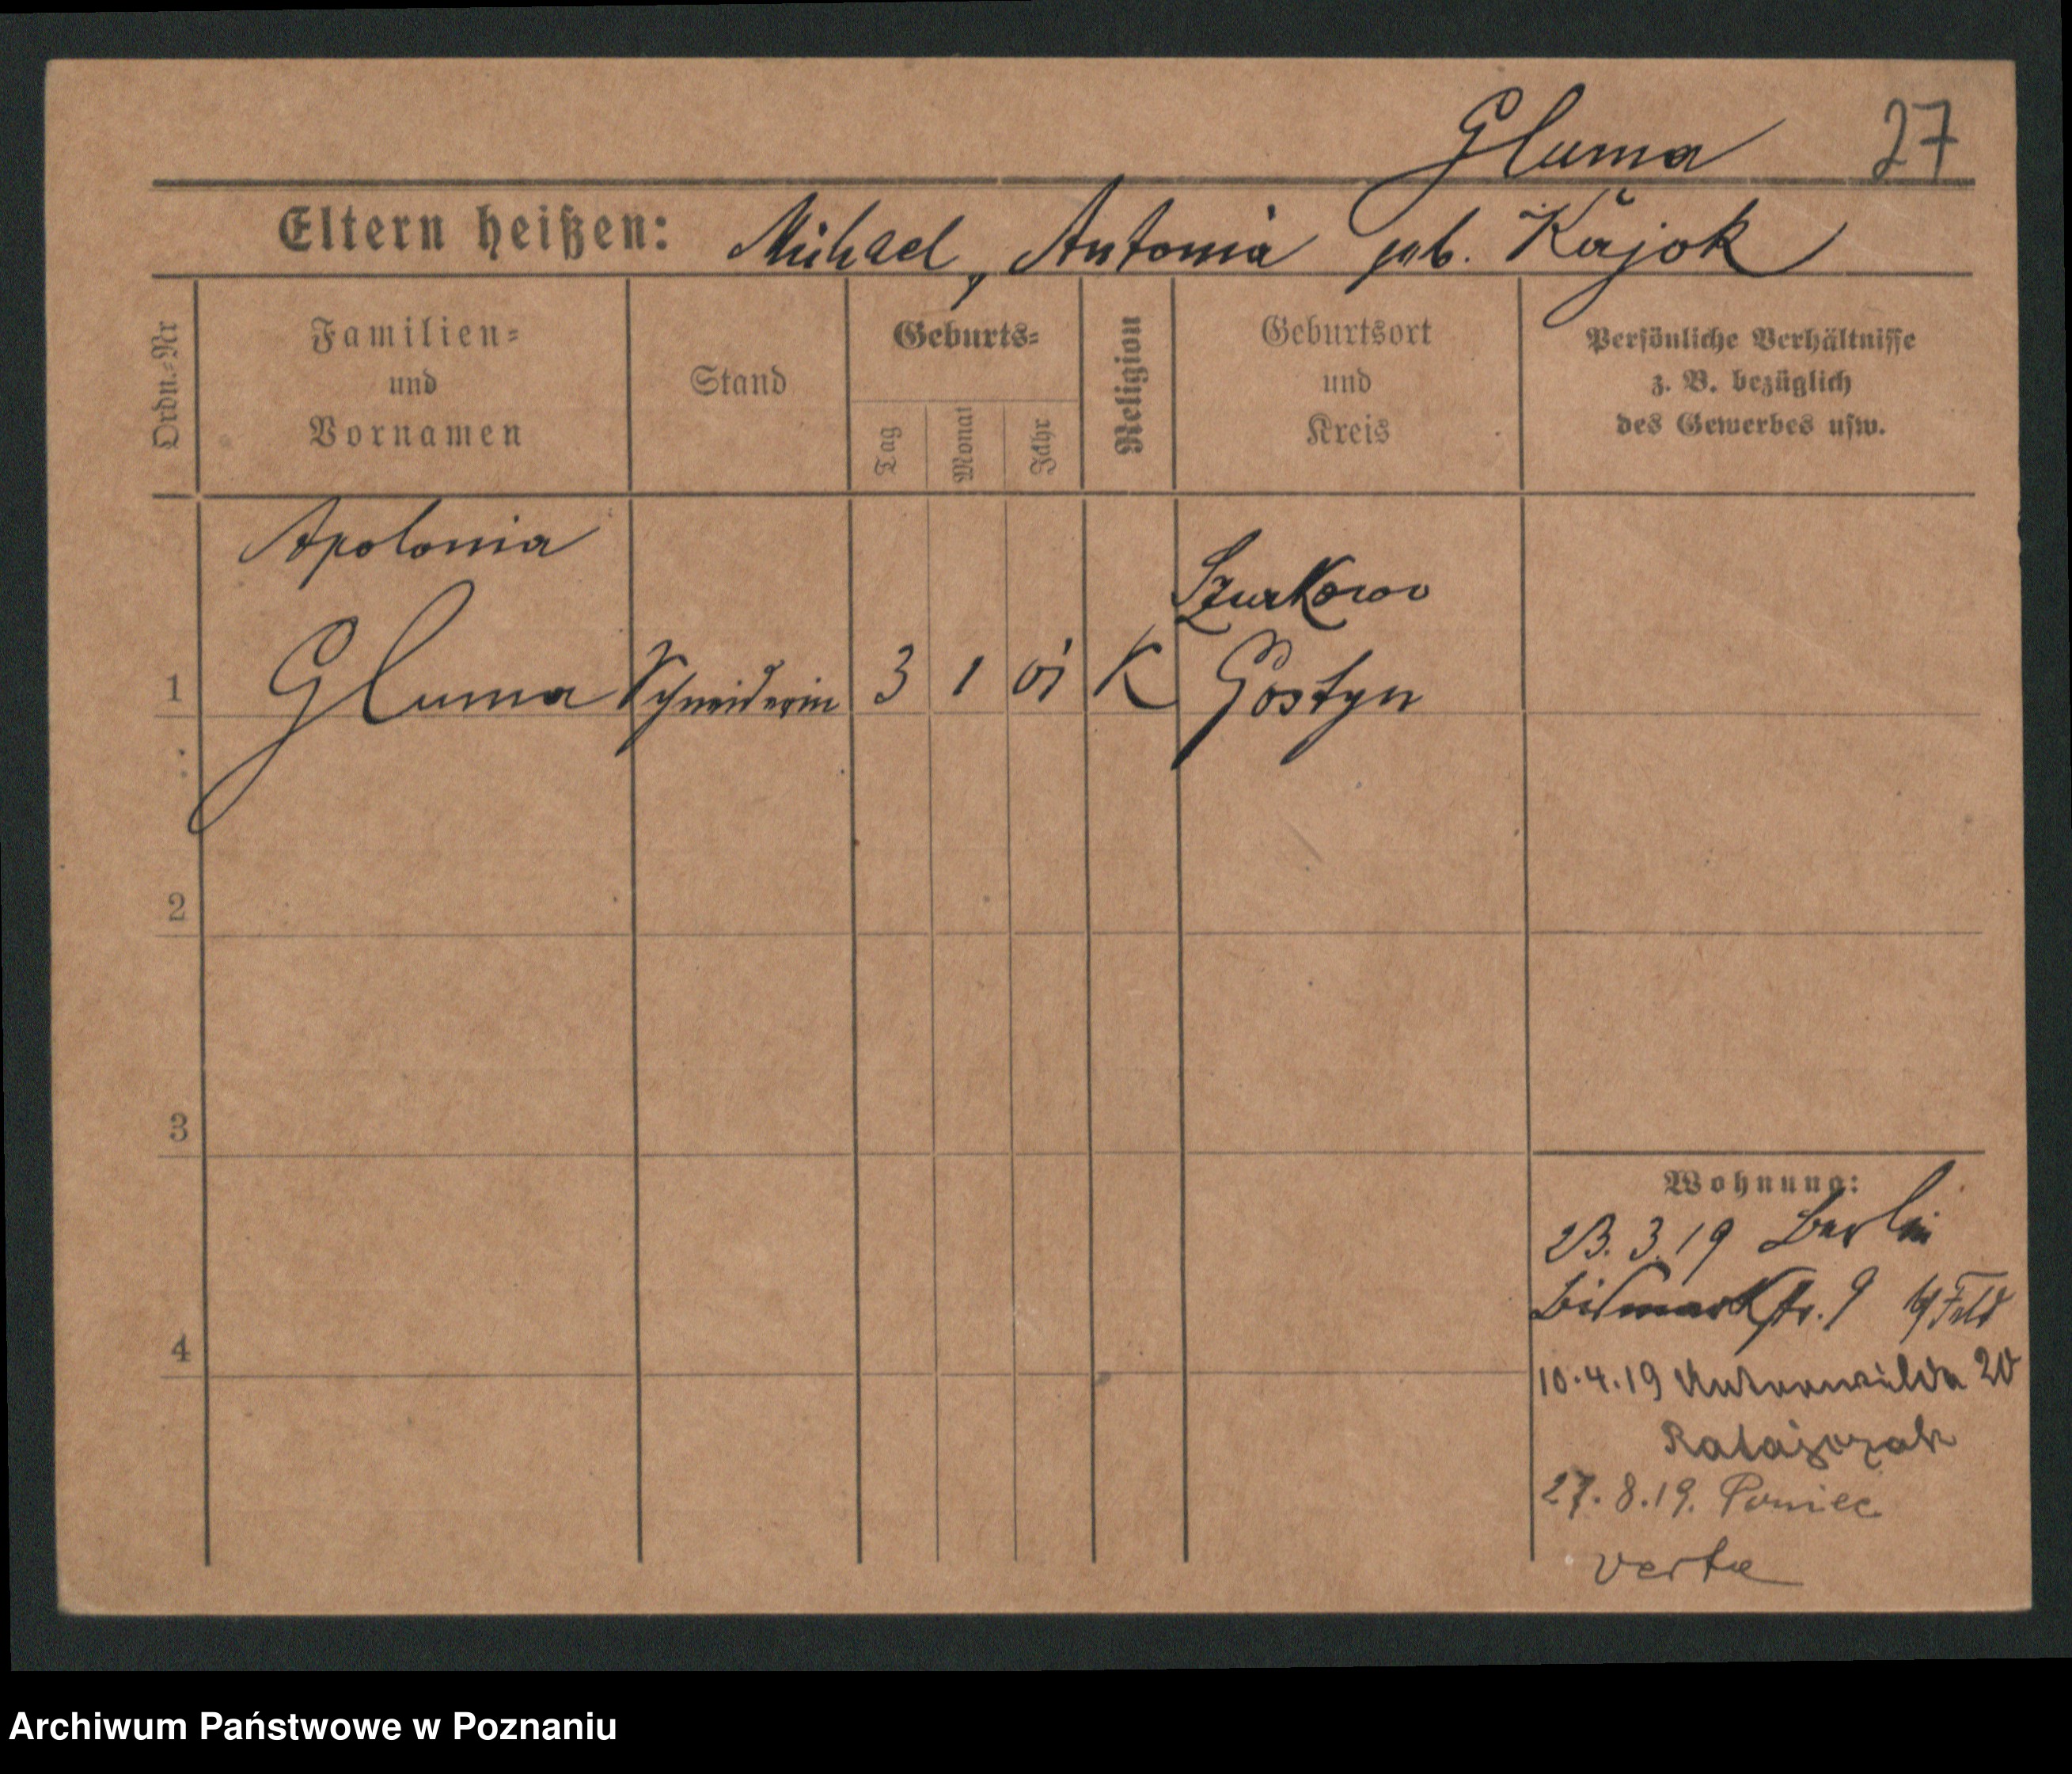 Gluma 27
Eltern heißen: Michael, Antonia geb. Kajok
Ordn.=Nr
Familien=
und
Vornamen
Stand
Geburts=
Tag
Monat
Jahr
Religion
Geburtsort
und
Kreis
Persönliche Verhältnisse
z. B. bezüglich
des Gewerbes usw.
Apolonia
Szurkowo
1 Gluma Schneiderin 3 1 01 K Gostyn
2
3
4
Wohnung:
23.3.19 Berlin
Bismarkstr. 9
10.4.19 Unterwilda 20
Ratajczak
27.8.19. Poniec
verte
Archiwum Państwowe w Poznaniu